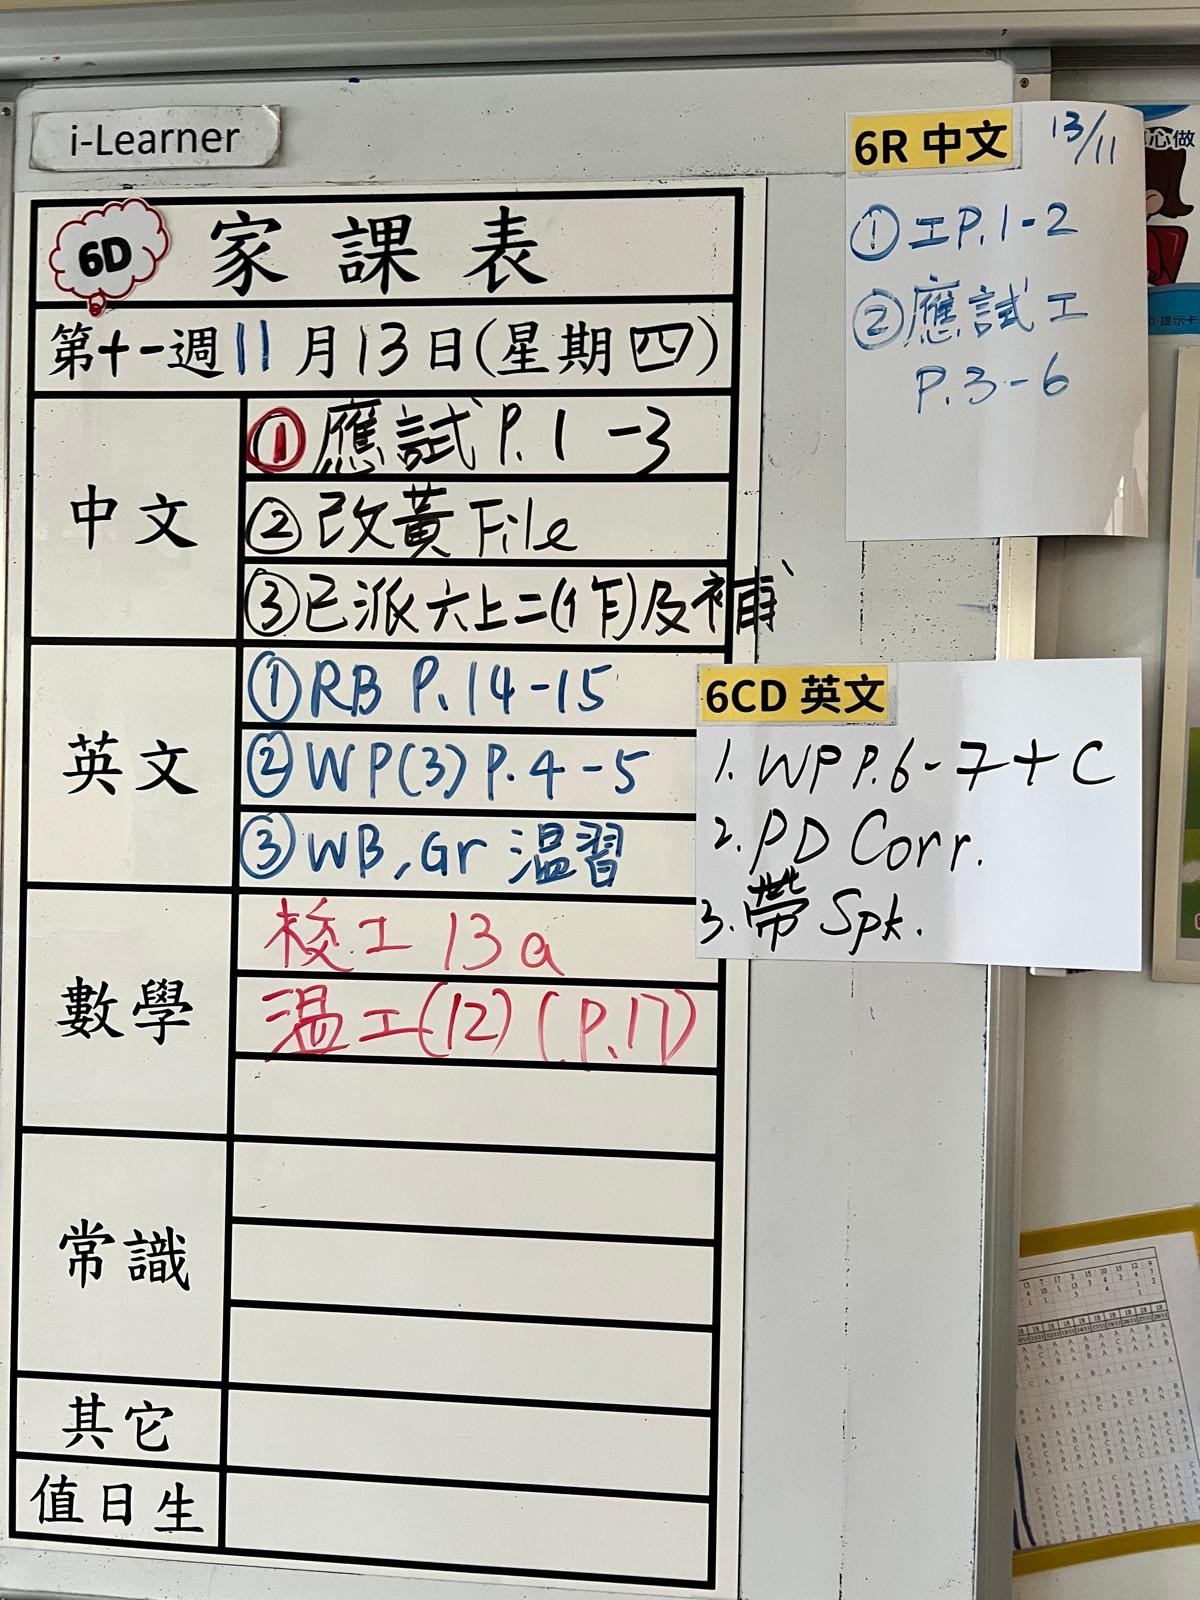 i-Learner
6D 家課表
第十一週11月13日(星期四)
中文
①應試P.1-3
②改黃File
③已派六上二(作)及補
英文
①RB P.14-15
②WP(3)P.4-5
③WB,Gr 溫習
數學
校工13a
溫工(12)(P.17)
常識
其它
值日生
6R 中文 13/11
①工P.1-2
②應試工
P.3-6
6CD 英文
1. WP P.6-7+C
2. PD Corr.
3. 帶 Spk.
心做
提示卡